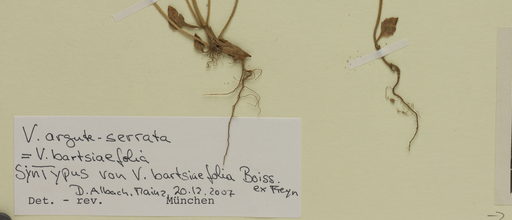 V. argute-serrata
= V. bartsiaefolia
Syntypus von V. bartsiaefolia Boiss.
ex Freyn
D. Albach, Mainz, 20.12.2007
Det. - rev. München